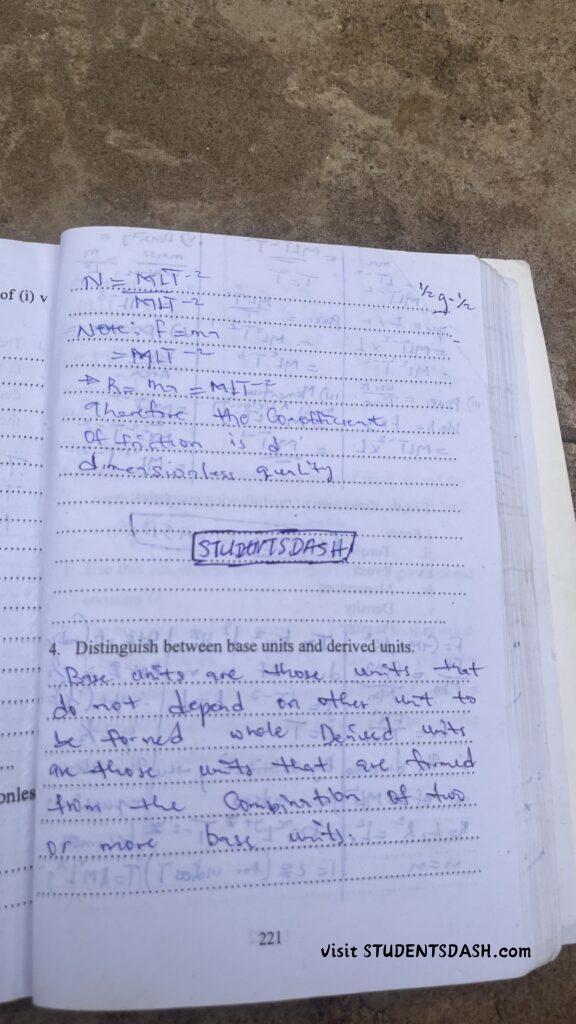 of (i) v
N = MLT-2
MLT-2
1/2 g-1/2
Note: f = ma
= MLT-2
R = ma = MLT-2
Therefore the Coefficient
Of friction is d
dimensionless quality
STUDENTSDASH
4. Distinguish between base units and derived units.
Base units are those units that
do not depend on other unit to
be formed whole Derived units
are those units that are formed
onles
from the Combination of two
or more base units.
221
visit STUDENTSDASH.com